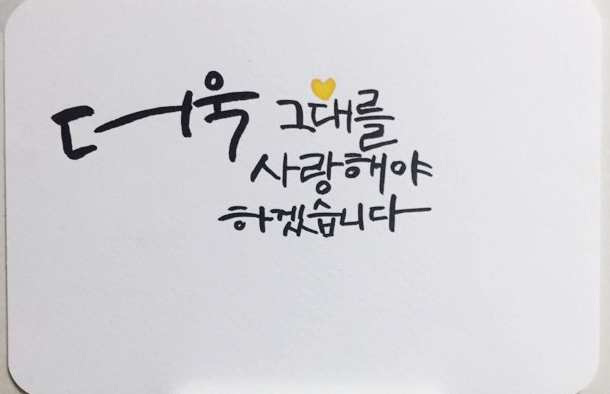 더욱 그대를
사랑해야
하겠습니다